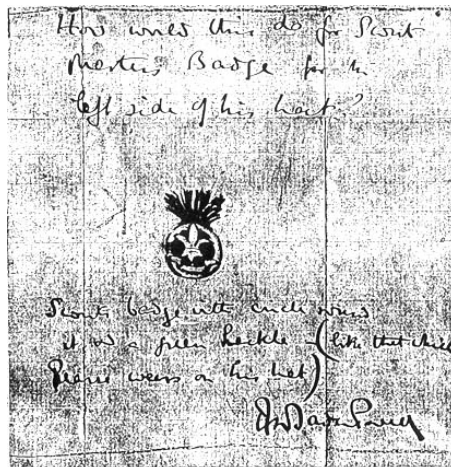 How would this do for Scout
Masters Badge for the
left side of his hat?
Scouts badge with circle round
it and a green heckle — (like that which
Pearse wears on his hat)